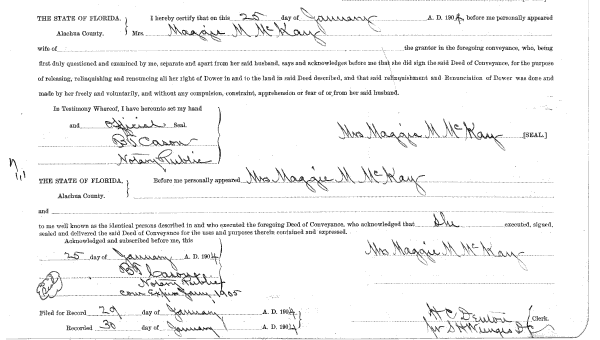 THE STATE OF FLORIDA, I hereby certify that on this 25 day of January A. D. 1904 before me personally appeared
Alachua County. Mrs. Maggie M McKay
wife of the grantor in the foregoing conveyance, who, being
first duly questioned and examined by me, separate and apart from her said husband, says and acknowledges before me that she did sign the said Deed of Conveyance, for the purpose
of releasing, relinquishing and renouncing all her right of Dower in and to the land in said Deed described, and that said relinquishment and Renunciation of Dower was done and
made by her freely and voluntarily, and without any compulsion, constraint, apprehension or fear of or from her said husband.
In Testimony Whereof, I have hereonto set my hand
and official Seal.
B P Cason
Notary Public
Mrs Maggie M McKay [SEAL.]
THE STATE OF FLORIDA, Before me personally appeared Mrs Maggie M McKay
Alachua County.
and
to me well known as the identical persons described in and who executed the foregoing Deed of Conveyance, who acknowledged that she executed, signed,
sealed and delivered the said Deed of Conveyance for the uses and purposes therein contained and expressed.
Acknowledged and subscribed before me, this
25 day of January A. D. 1904
Mrs Maggie M McKay
B P Cason
Notary Public
Com Expires Jany 1905
Seal
Filed for Record 29 day of January A. D. 1904
Recorded 30 day of January A. D. 1904
H C Denton Clerk.
pr S H Wienges D C